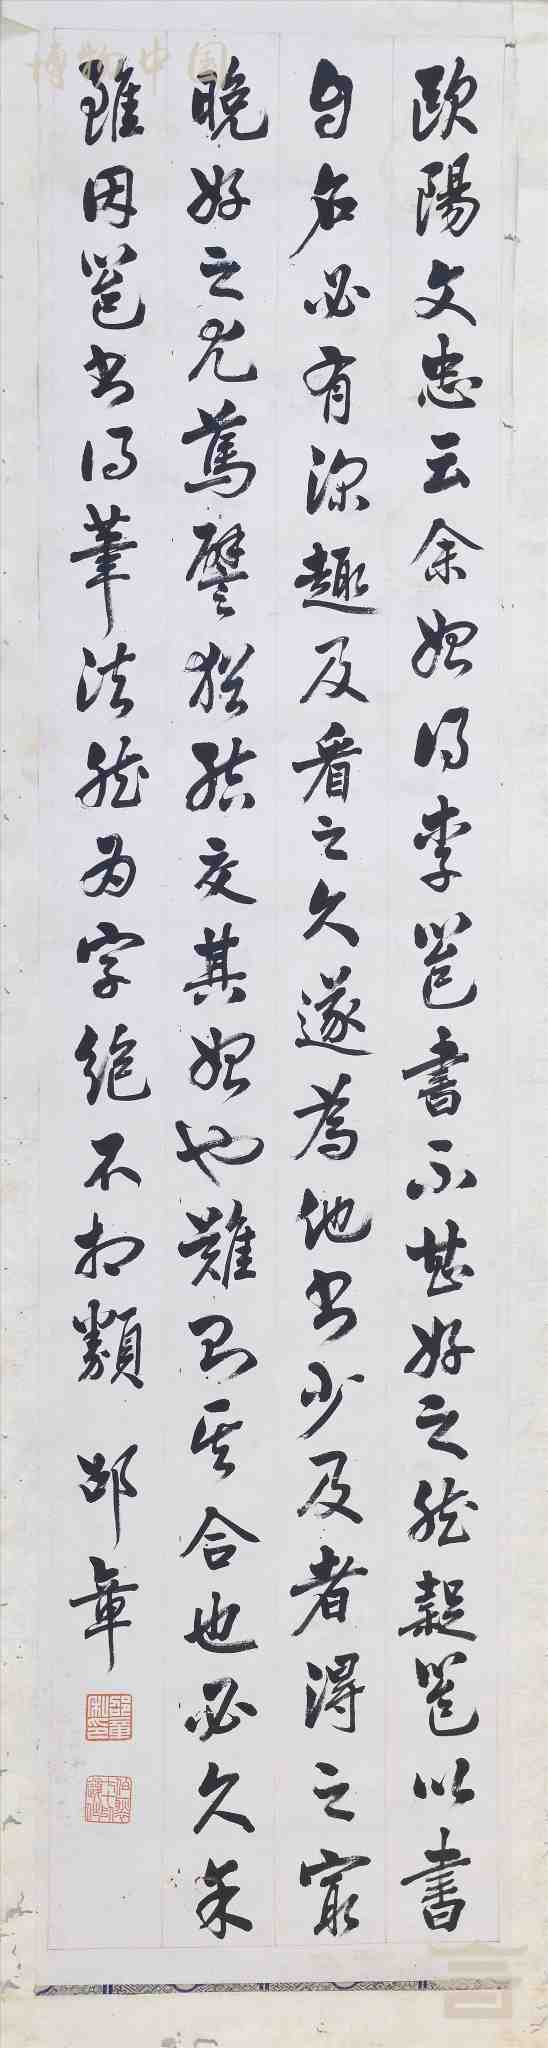 歐陽文忠云余始得李邕書不甚好之然疑邕以書
自名必有深趣及看之久遂為他書少及者得之最
晚好之尤篤譬猶結交其始也難則其合也必久余
雖因邕書得筆法然為字絕不相類 邵章
邵章私印
博物中国